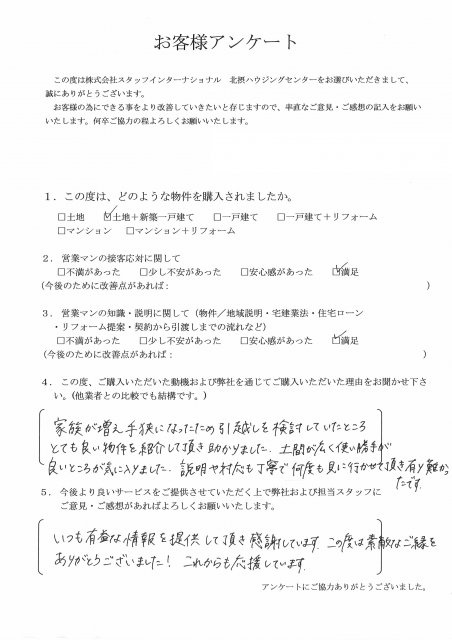 お客様アンケート
この度は株式会社スタッフインターナショナル　北摂ハウジングセンターをお選びいただきまして、
誠にありがとうございます。
お客様の為にできる事をより改善していきたいと存じますので、率直なご意見・ご感想の記入をお願い
いたします。何卒ご協力の程よろしくお願いいたします。
１．この度は、どのような物件を購入されましたか。
□土地　☑土地＋新築一戸建て　□一戸建て　□一戸建て＋リフォーム
□マンション　□マンション＋リフォーム
２．営業マンの接客応対に関して
□不満があった　□少し不安があった　□安心感があった　☑満足
(今後のために改善点があれば：　)
３．営業マンの知識・説明に関して（物件／地域説明・宅建業法・住宅ローン
・リフォーム提案・契約から引渡しまでの流れなど）
□不満があった　□少し不安があった　□安心感があった　☑満足
(今後のために改善点があれば：　)
４．この度、ご購入いただいた動機および弊社を通じてご購入いただいた理由をお聞かせ下さ
い。(他業者との比較でも結構です。)
家族が増え手狭になったため引越しを検討していたところ
とても良い物件を紹介して頂き助かりました。土間が広く使い勝手が
良いところが気に入りました。説明や対応も丁寧で何度も見に行かせて頂き有り難かっ
たです。
５．今後より良いサービスをご提供させていただく上で弊社および担当スタッフに
ご意見・ご感想があればよろしくお願いいたします。
いつも有益な情報を提供して頂き感謝しています。この度は素敵なご縁を
ありがとうございました！これからも応援しています。
アンケートにご協力ありがとうございました。